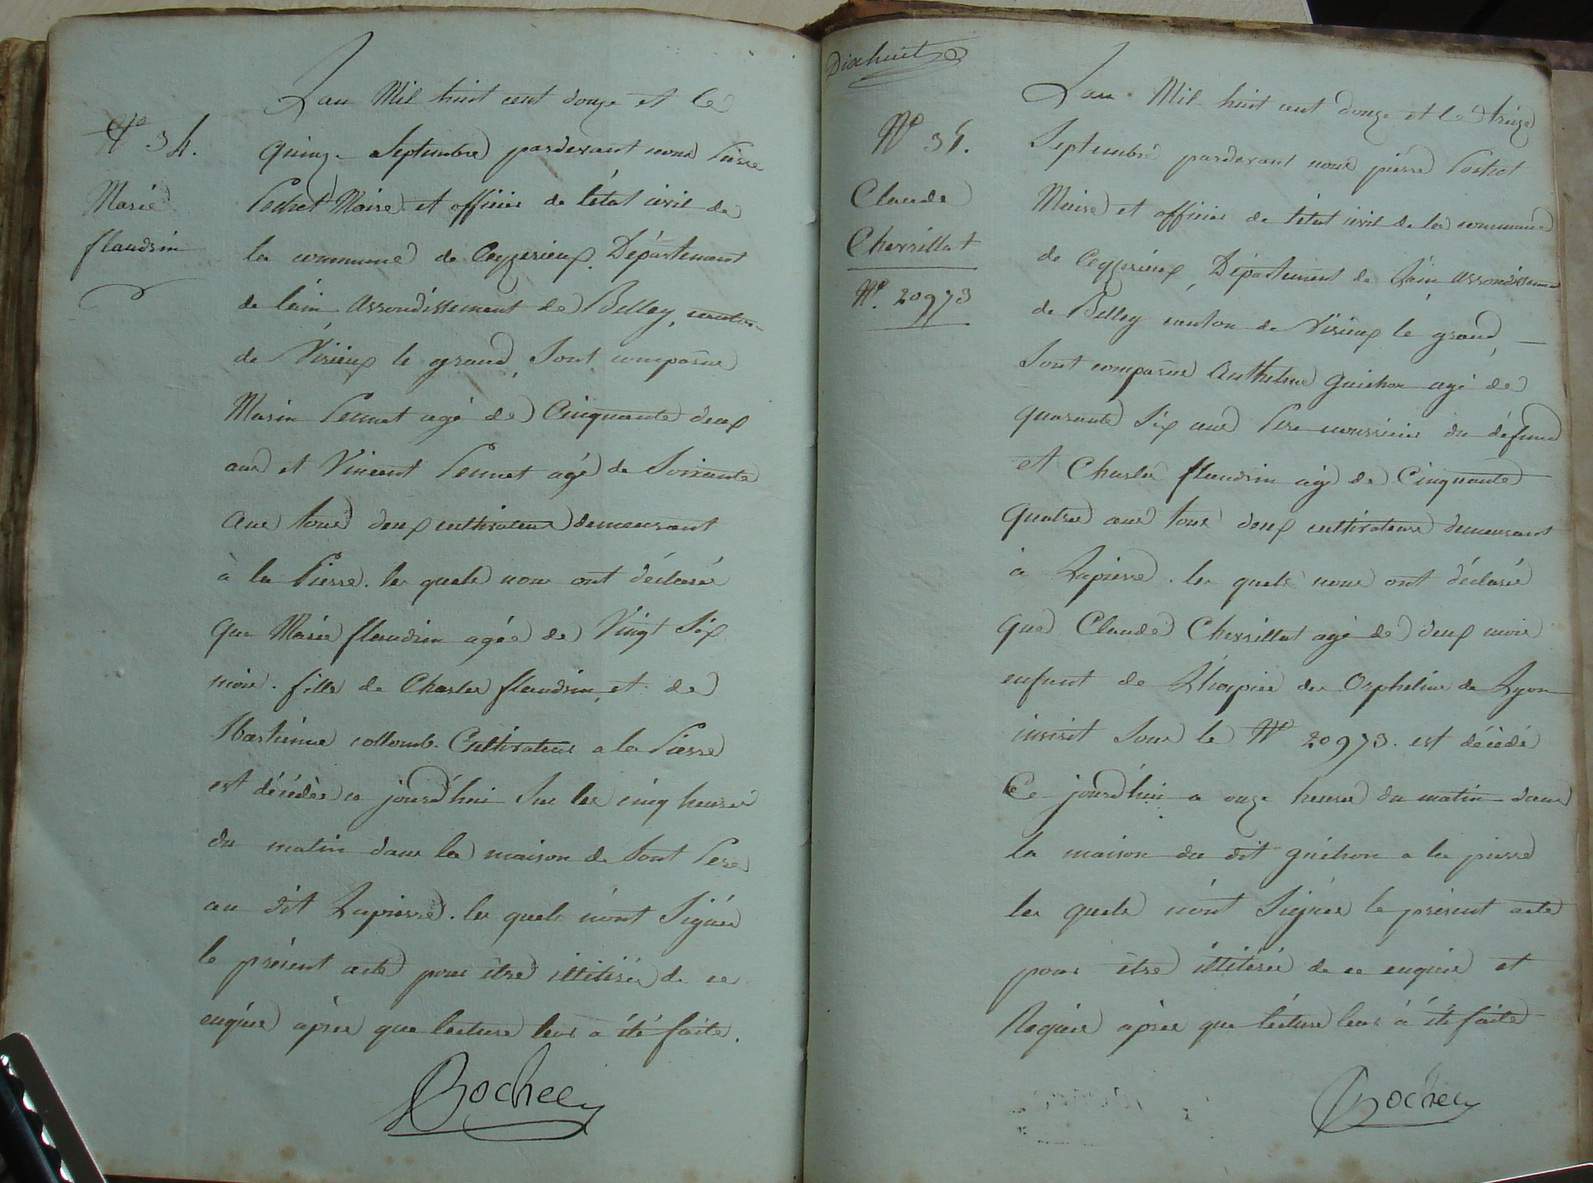 N° 34.
Marie
flandrin
Lan Mil huit cent douze et le
quinze Septembre pardevant nous Pierre
Pochet Maire et officier de l'état civil de
la commune de Ceyzerieux, Département
de l'ain arrondissement de Belley, canton
de Virieux le grand, Sont comparus
Marin Pennet agé de Cinquante deux
ans et Vincent Pennet agé de Soixante
ans tous deux cultivateurs demeurant
à la Pierre. les quels nous ont déclaré
que Marie flandrin agée de Vingt Six
mois. fille de Charles flandrin, et de
collomb. Cultivateurs a la Pierre
est décédée ce jourd'hui Sur les cinq heures
du matin dans la maison de Sont Pere
au dit Lapierre. les quels n'ont Signés
le présent acte pour être illitérés de ce
enquis après que lecture leur a été faite.
Dixhuit
N° 35.
Claude
Chervillat
N°. 20973
Lan Mil huit cent douze et le treize
Septembre pardevant nous pierre Pochet
Maire et officier de l'état civil de la commune
de Ceyzerieux, Département de l'ain arrondissement
de Belley canton de Virieux le grand,
Sont comparus Anthelme guichon agé de
quarante Six ans Pere nourricier du défunt
et Charles flandrin agé de Cinquante
quatre ans tous deux cultivateurs demeurant
à Lapierre. les quels nous ont déclaré
que Claude Chervillat agé de deux mois
enfant de L'hospice des Orphelins de Lyon
inscrit Sous le N° 20973. est décédé
Ce jourd'hui a onze heures du matin dans
la maison du dit guichon a la pierre
les quels n'ont Signés le présent acte
pour être illitérés de ce enquis et
Requis après que lecture leur à été faite